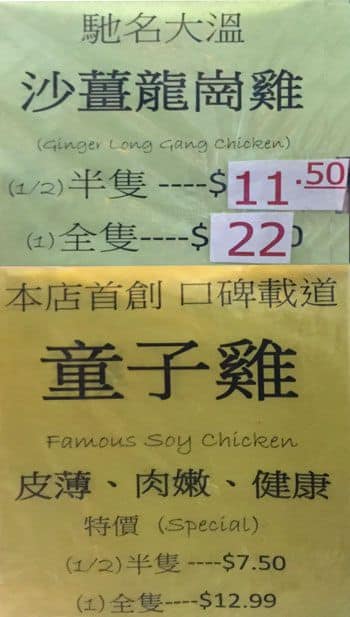 馳名大溫
沙薑龍崗雞
(Ginger Long Gang Chicken)
(1/2)半隻 ----$11.50
(1)全隻----$ 22
本店首創 口碑載道
童子雞
Famous Soy Chicken
皮薄、肉嫩、健康
特價 (Special)
(1/2)半隻 ----$7.50
(1)全隻----$12.99